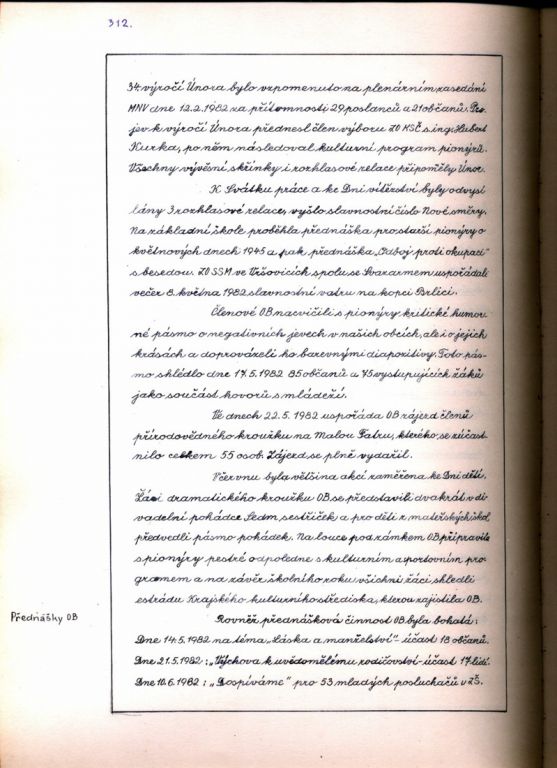 312.
34. výročí Února bylo vzpomenuto na plenárním zasedání
MNV dne 12.2.1982 za přítomnosti 29 poslanců a 21 občanů. Pro-
jev k výročí Února přednesl člen výboru ZO KSČ s. ing. Hubert
Kurka, po něm následoval kulturní program pionýrů.
Všechny vývěsní skříňky i rozhlasové relace připoměly Únor.
K Svátku práce a ke Dni vítězství byly odvysí-
lány 3 rozhlasové relace, vyšlo slavnostní číslo Nové směry.
Na základní škole proběhla přednáška pro starší pionýry o
květnových dnech 1945 a pak přednáška „Odboj proti okupaci"
s besedou. ZO SSM ve Vršovicích spolu se Svazarmem uspořádali
večer 8. května 1982 slavnostní vatru na kopci Brlici.
Členové OB nacvičili s pionýry kritické humor-
né pásmo o negativních jevech v našich obcích, ale i o jejich
krásách a doprovázeli ho barevnými diapozitivy. Toto pás-
mo shlédlo dne 17.5.1982 85 občanů a 45 vystupujících žáků
jako součást hovorů s mládeží.
Ve dnech 22.5.1982 uspořáda OB zájezd členů
přírodovědného kroužku na Malou Fatru, kterého se zúčast-
nilo celkem 55 osob. Zájezd se plně vydařil.
V červnu byla většina akcí zaměřena ke Dni dětí.
Žáci dramatického kroužku OB se představili dvakrát v di-
vadelní pohádce Sedm sestřiček a pro děti z mateřských škol
předvedli pásmo pohádek. Na louce pod zámkem OB připravila
s pionýry pestré odpoledne s kulturním a sportovním pro-
gramem a na závěr školního roku všichni žáci shledli
estrádu Krajského kulturního střediska, kterou zajistila OB.
Přednášky OB
Rovněž přednášková činnost OB byla bohatá:
Dne 14.5.1982 na téma „Láska a manželství" - účast 18 občanů.
Dne 21.5.1982: „Výchova k uvědomělému rodičovství - účast 17 lidí.
Dne 10.6.1982: „Dospíváme" pro 53 mladých posluchačů v ZŠ.